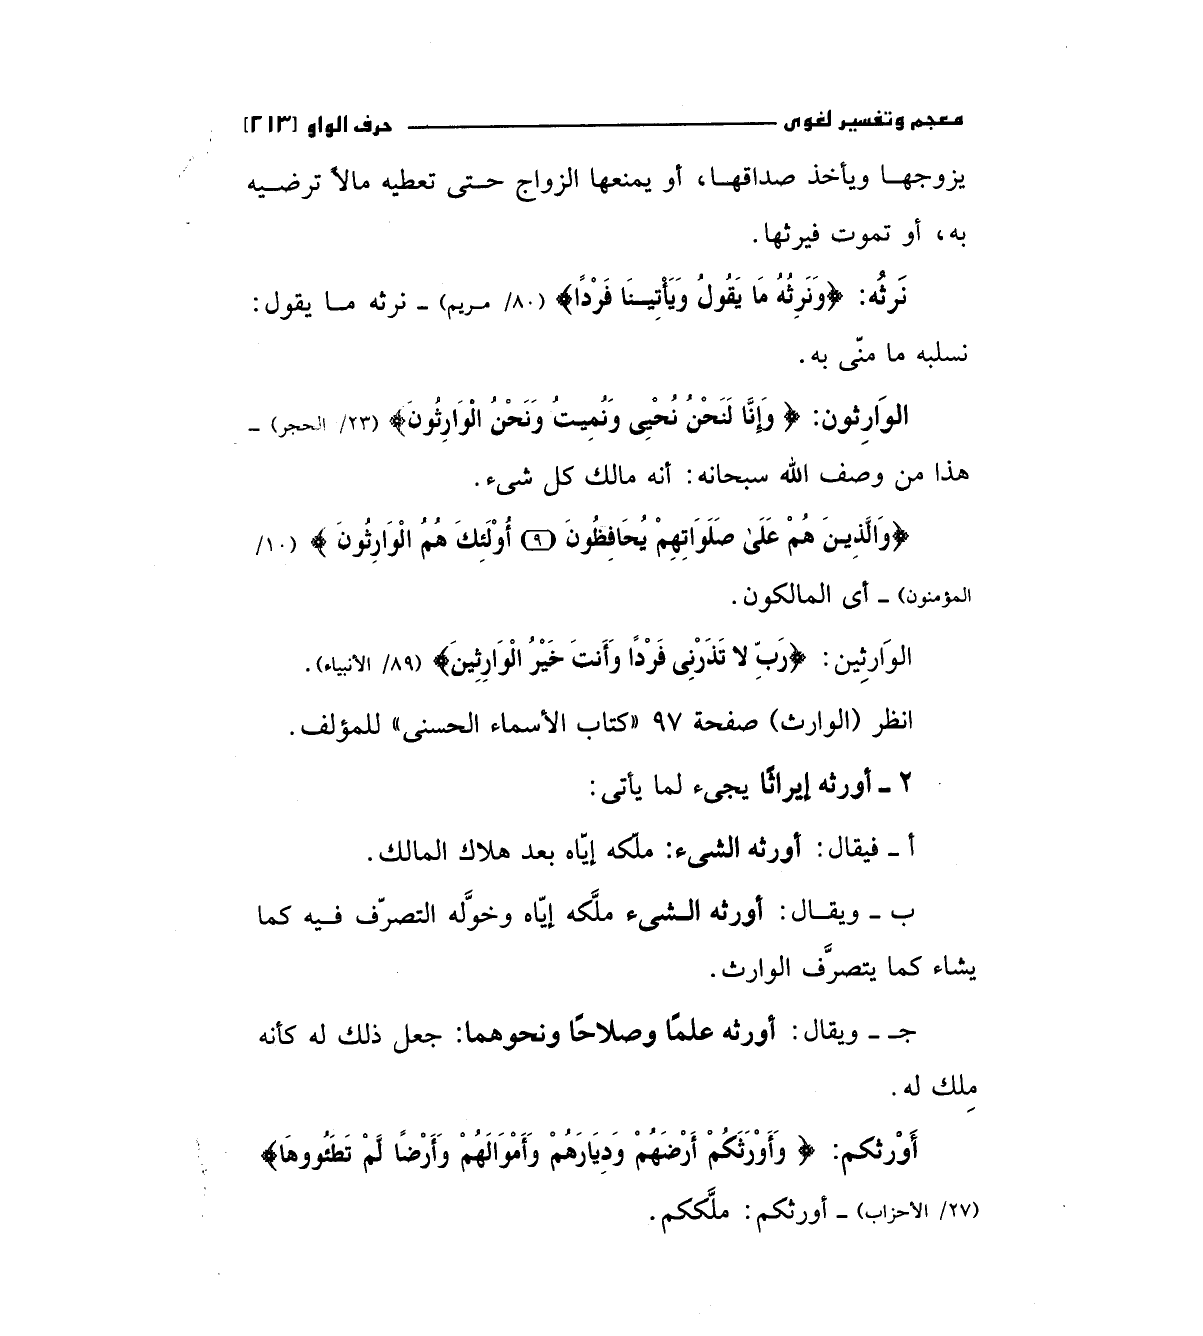 معجم وتفسير لغوى ـــــ حرف الواو [٢١٣]
يزوجهـا ويأخذ صداقهـا، أو يمنعها الزواج حتـى تعطيه مالاً ترضـيه
به، أو تموت فيرثها.
نَرثُه: ﴿وَنَرِثُهُ مَا يَقُولُ وَيَأْتِيـنَا فَرْدًا﴾ (٨٠/ مـريم) ـ نرثه مـا يقول:
نسلبه ما منّى به.
الوَارِثون: ﴿ وَإِنَّا لَنَحْنُ نُحْيِى وَنُمِيتُ وَنَحْنُ الْوَارِثُونَ﴾ (٢٣/ الحجر) ـ
هذا من وصف الله سبحانه: أنه مالك كل شىء.
﴿وَالَّذِيـنَ هُمْ عَلَىٰ صَلَوَاتِهِمْ يُحَافِظُونَ (٩) أُوْلَئِكَ هُمُ الْوَارِثُونَ ﴾ (١٠/
المؤمنون) ـ أى المالكون.
الوَارِثِين: ﴿رَبِّ لا تَذَرْنِى فَرْدًا وَأَنتَ خَيْرُ الْوَارِثِينَ﴾ (٨٩/ الأنبياء).
انظر (الوارث) صفحة ٩٧ «كتاب الأسماء الحسنى» للمؤلف.
٢ ـ أورثه إيراثًا يجىء لما يأتى:
أ ـ فيقال: أورثه الشىء: ملّكه إيّاه بعد هلاك المالك.
ب ـ ويقـال: أورثه الـشىء ملَّكه إيّاه وخوَّله التصرّف فـيه كما
يشاء كما يتصرَّف الوارث.
جـ ـ ويقال: أورثه علمًا وصلاحًا ونحوهما: جعل ذلك له كأنه
مِلك له.
أَوْرثكم: ﴿ وَأَوْرَثَكُمْ أَرْضَهُمْ وَدِيَارَهُمْ وَأَمْوَالَهُمْ وَأَرْضًا لَّمْ تَطَئُووهَا﴾
(٢٧/ الأحزاب) ـ أورثكم: ملَّككم.